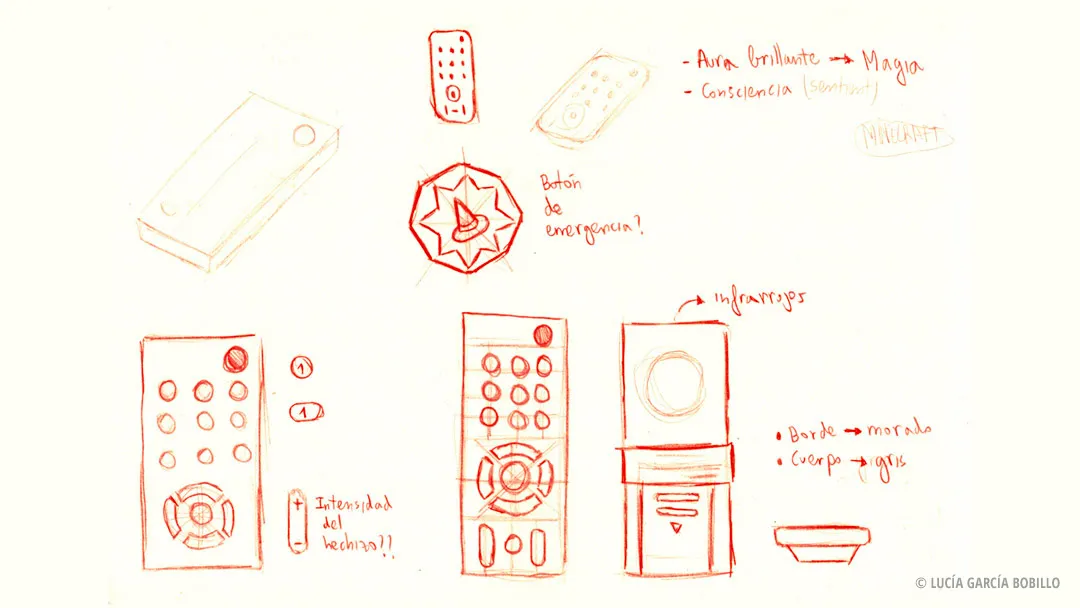 - Aura brillante → Magia
- Consciencia (sentient)
MINECRAFT
Botón
de
emergencia?
→ infrarrojos
1
1
+
-
Intensidad
del
hechizo??
• Borde → morado
• Cuerpo → gris
© LUCÍA GARCÍA BOBILLO